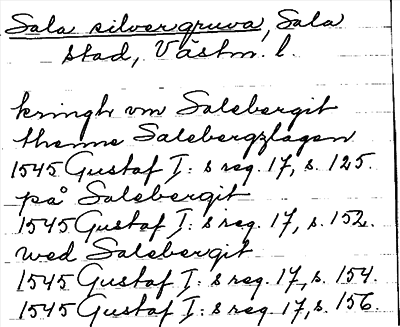 Sala silvergruva, Sala
stad, Västm. l.
kringh vm Salebergit
thenne Salebergzlagen
1545 Gustaf I: s reg. 17, s. 125.
på Salebergit
1545 Gustaf I: s reg. 17, s. 152.
wed Salebergit
1545 Gustaf I: s reg. 17, s. 154.
1545 Gustaf I: s reg. 17, s. 156.